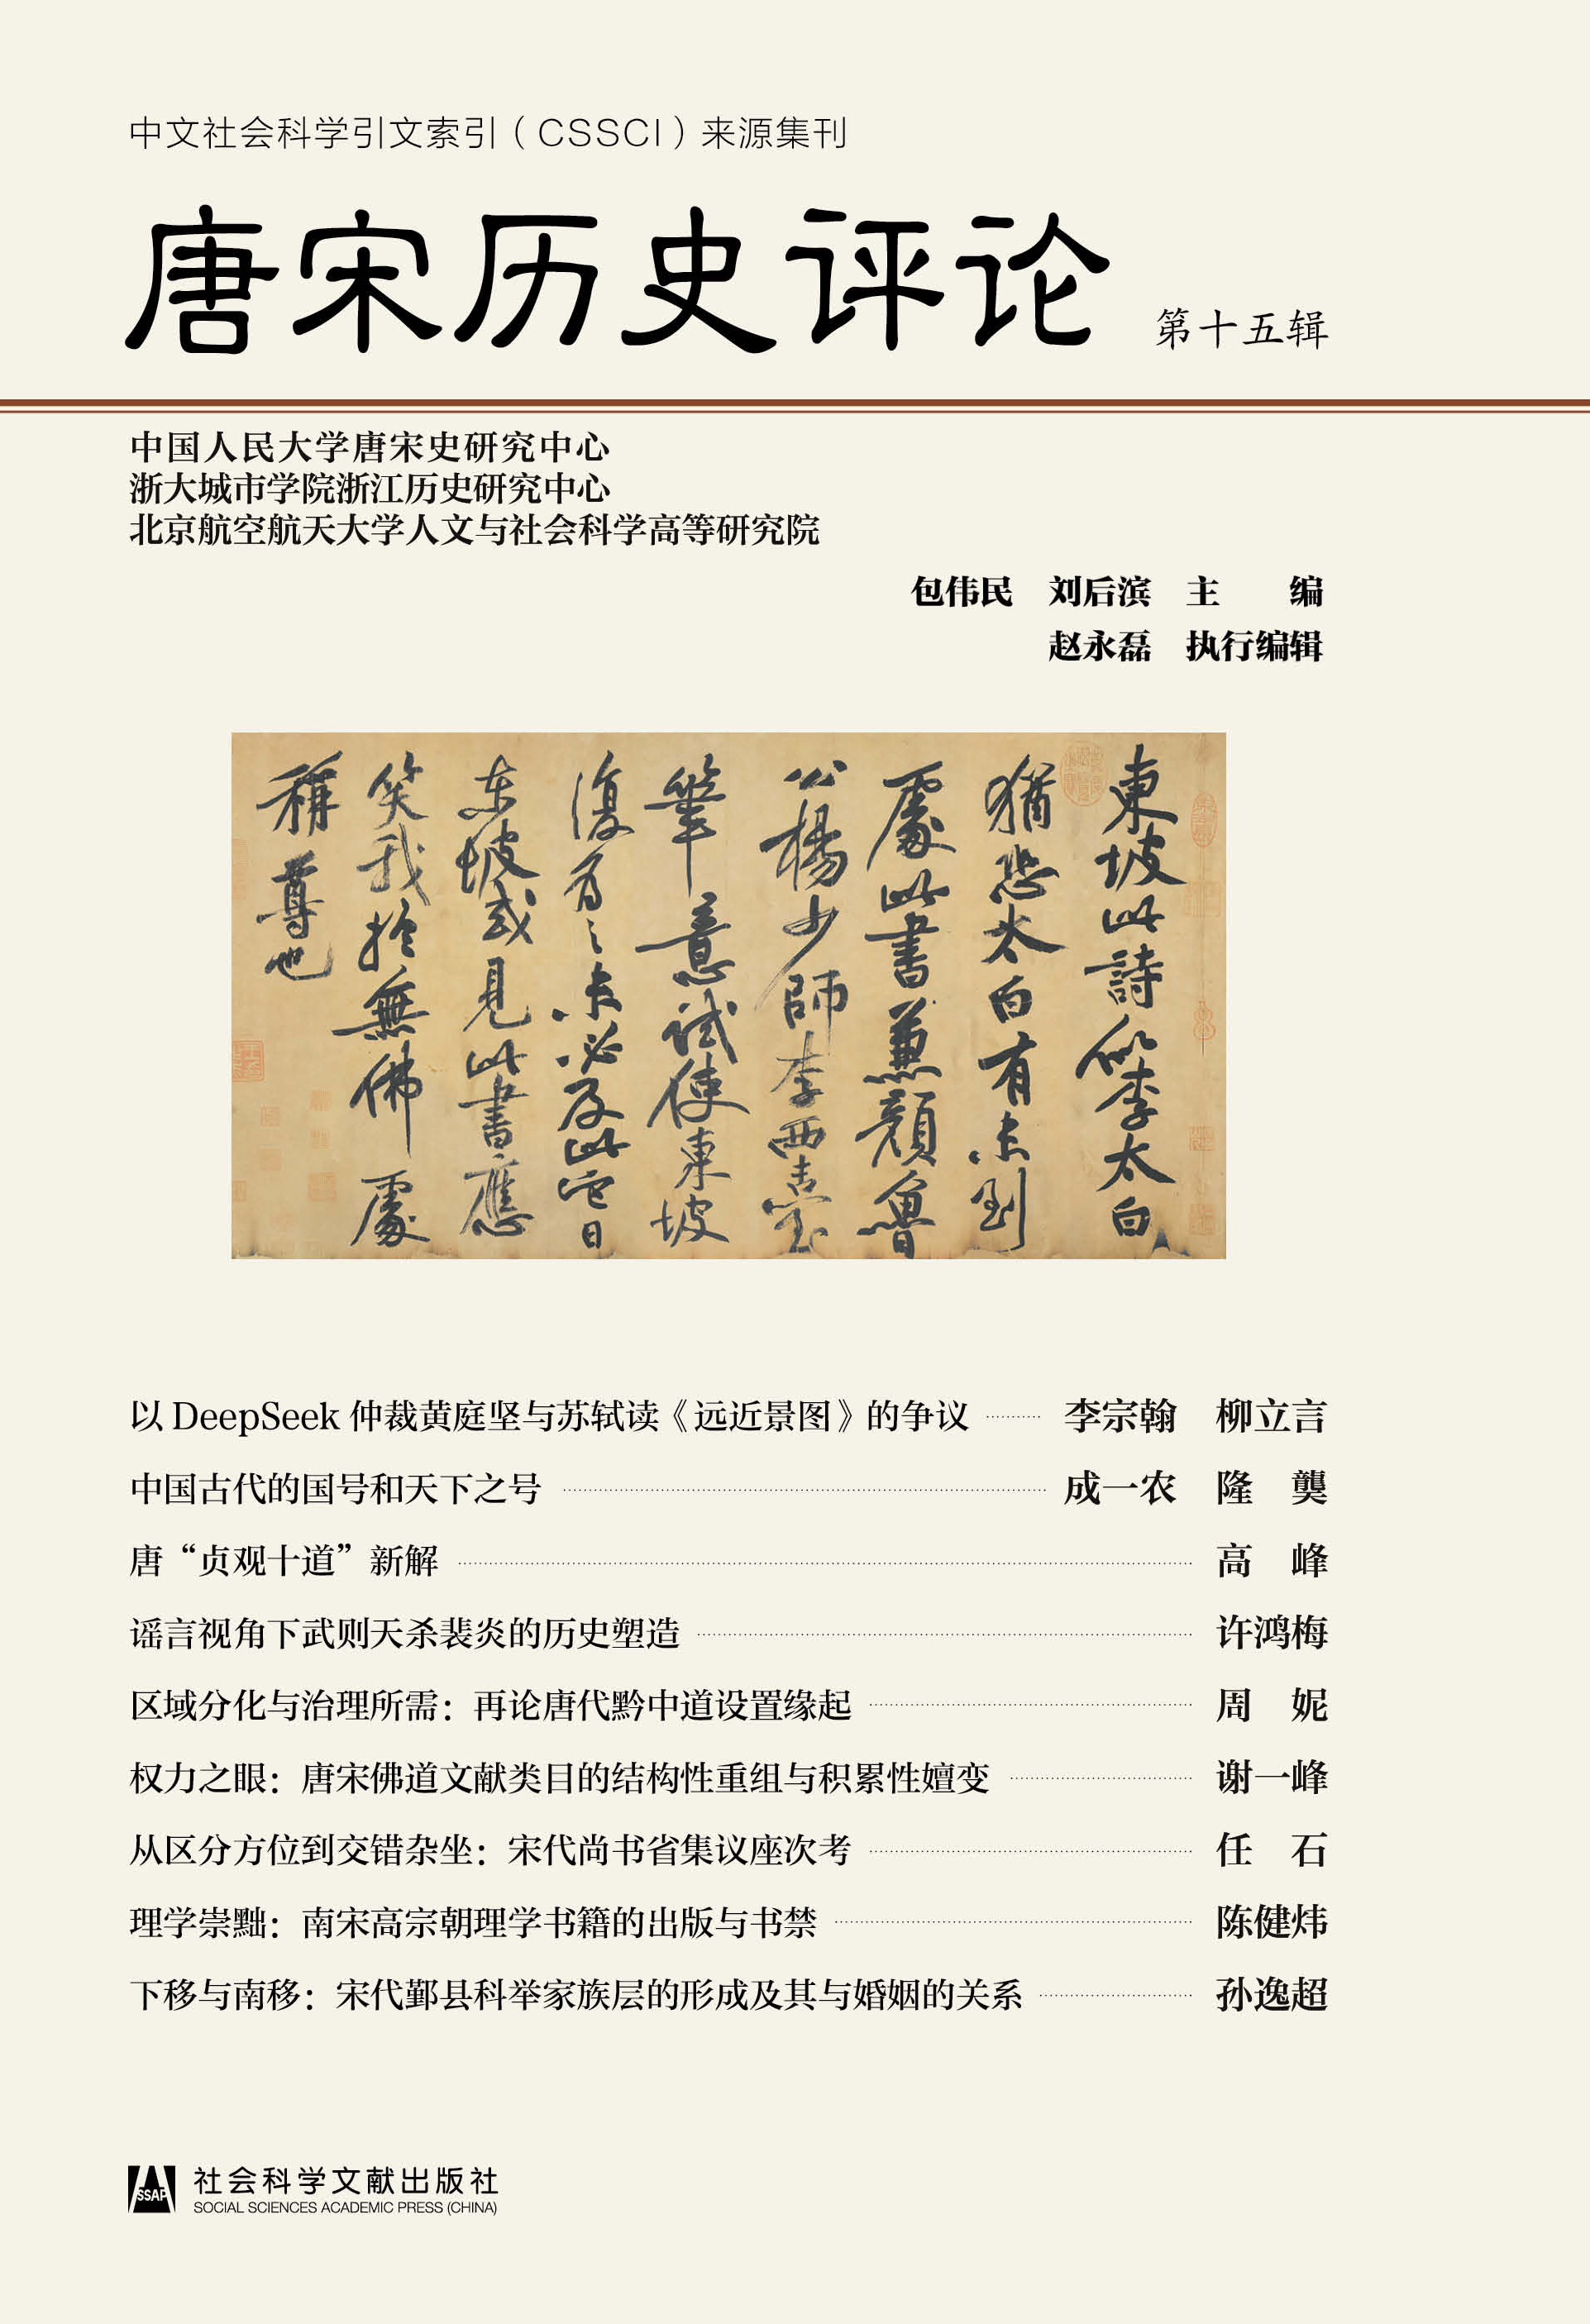 中文社会科学引文索引（CSSCI）来源集刊
唐宋历史评论 第十五辑
中国人民大学唐宋史研究中心
浙大城市学院浙江历史研究中心
北京航空航天大学人文与社会科学高等研究院
包伟民 刘后滨 主 编
赵永磊 执行编辑
東坡此詩似李太白
猶恐太白有未到
處此書兼顏魯
公楊少師李西臺
筆意試使東坡
復為之未必及此它日
东坡或見此書應
笑我於無佛處
稱尊也
以 DeepSeek 仲裁黄庭坚与苏轼读《远近景图》的争议 李宗翰 柳立言
中国古代的国号和天下之号 成一农 隆 龑
唐“贞观十道”新解 高 峰
谣言视角下武则天杀裴炎的历史塑造 许鸿梅
区域分化与治理所需：再论唐代黔中道设置缘起 周 妮
权力之眼：唐宋佛道文献类目的结构性重组与积累性嬗变 谢一峰
从区分方位到交错杂坐：宋代尚书省集议座次考 任 石
理学崇黜：南宋高宗朝理学书籍的出版与书禁 陈健炜
下移与南移：宋代鄞县科举家族层的形成及其与婚姻的关系 孙逸超
SSAP 社会科学文献出版社
SOCIAL SCIENCES ACADEMIC PRESS (CHINA)